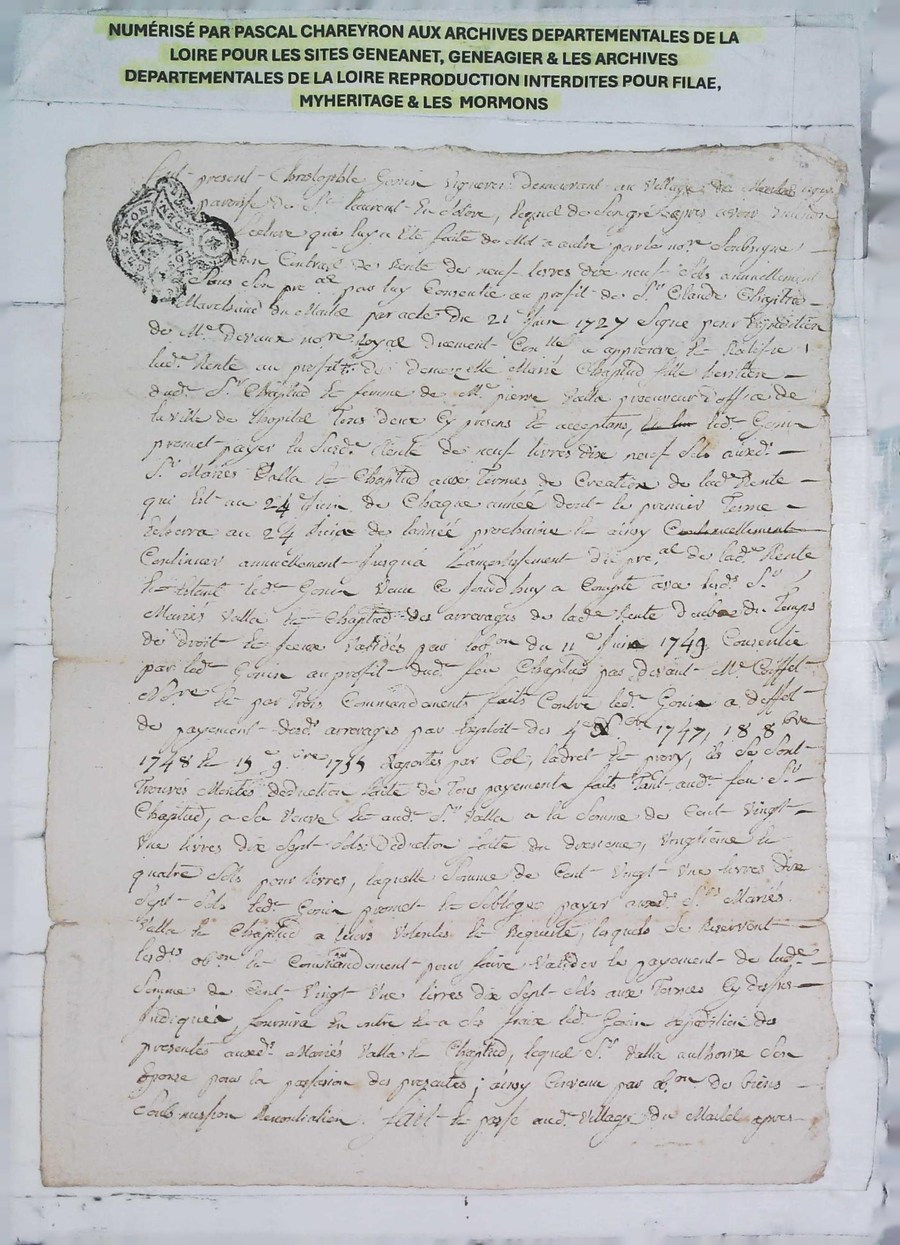 NUMÉRISÉ PAR PASCAL CHAREYRON AUX ARCHIVES DEPARTEMENTALES DE LA
LOIRE POUR LES SITES GENEANET, GENEAGIER & LES ARCHIVES
DEPARTEMENTALES DE LA LOIRE REPRODUCTION INTERDITES POUR FILAE,
MYHERITAGE & LES MORMONS
present Christophle Gonin Vigneron demeurant au Village du
paroisse de St Laurent En lequel de son gré apres avoir
lecture que luy a Eté faite de Mot a autre par le nore soubsigné
Contrat de Vente de neuf livres dix neuf sols annuellement
Sous Son pral par luy Consentie au profit de Sr Claude Chaptud
Marchand du Marlet par acte du 21e Juin 1727 Signé pour Expedition
de Me Devaux nore Royal a approuvé Et Ratifié
lade Rente au profit de demoizelle Marie Chaptud fille heritiere
dud. Sr Chaptud Et femme de Me pierre Valla procureur d'office de
la Ville de Thopital Tous deux Cy presens Et acceptans, led. Gonin
promet payer la Susde Rente de neuf livres dix neuf sols auxds
Srs Mariés Valla Et Chaptud aux Termes de Creation de lade Rente
qui Est au 24 Juin de Chaque année dont le premier Terme
Echeera au 24 Juin de lannée prochaine Et ainsy Continuellement
Continuer annuellement Jusqu'a L'amortissement du pral de lade Rente
Et Estant led. Gonin Venu Ce Jourdhuy a Compte avec lesds Srs
Mariés Valla Et Chaptud des arrerages de lade Rente du Temps
de droit Et Ceux Validés par obon du 11e Juin 1749 Consentie
par led. Gonin au profit dud. feu Chaptud pardevant Me Coiffet
Nore Et par Trois Commandements faits Contre led. Gonin a deffet
de payement desds arrerages par Exploit des 4e 1747, 18 8bre
1748 Et 15e 9bre Raportés par Col, ladret Et prory, ils Se Sont
Trouvés Montés deduction faite de Tous payements faits Tant aud. feu Sr
Chaptud, a sa Veuve Et aud. Sr Valla a la Somme de Cent Vingt
Une livres dix Sept Sols deduction faite du dixieme, Vingtieme Et
quatre Sols pour livres, laquelle Somme de Cent Vingt Une livres dix
Sept Sols led. Gonin promet Et Soblige payer auxds Srs Mariés
Valla Et Chaptud a leurs Volontés Et Requette, lesquels Se Reservent
lesds obon Et Commandement pour faire Valider le payement de lade
Somme de Cent Vingt Une livres dix Sept Sols aux Termes Cy dessus
Indiqués, fournira En outre Et a Ses fraix led. Gonin Expedition des
presentes auxds Mariés Valla Et Chaptud, lequel Sr Valla authorise Son
Epouse pour la passation des presentes; ainsy Convenu par obon de biens
Soubmission Renontiation. fait Et passé aud. Village du Marlet apres